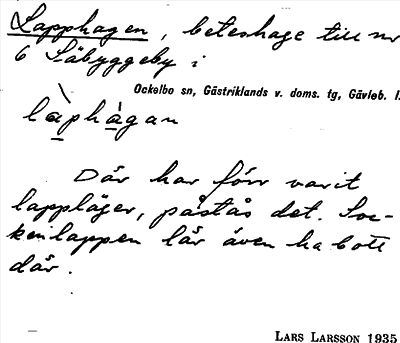 Lapphagen, beteshage till nr
6 Säbyggeby i
Ockelbo sn, Gästriklands v. doms. tg, Gävleb. l.
làphàgan
Där har förr varit
lappläger, påstås det. Soc-
kenlappen lär även ha bott
där.
LARS LARSSON 1935